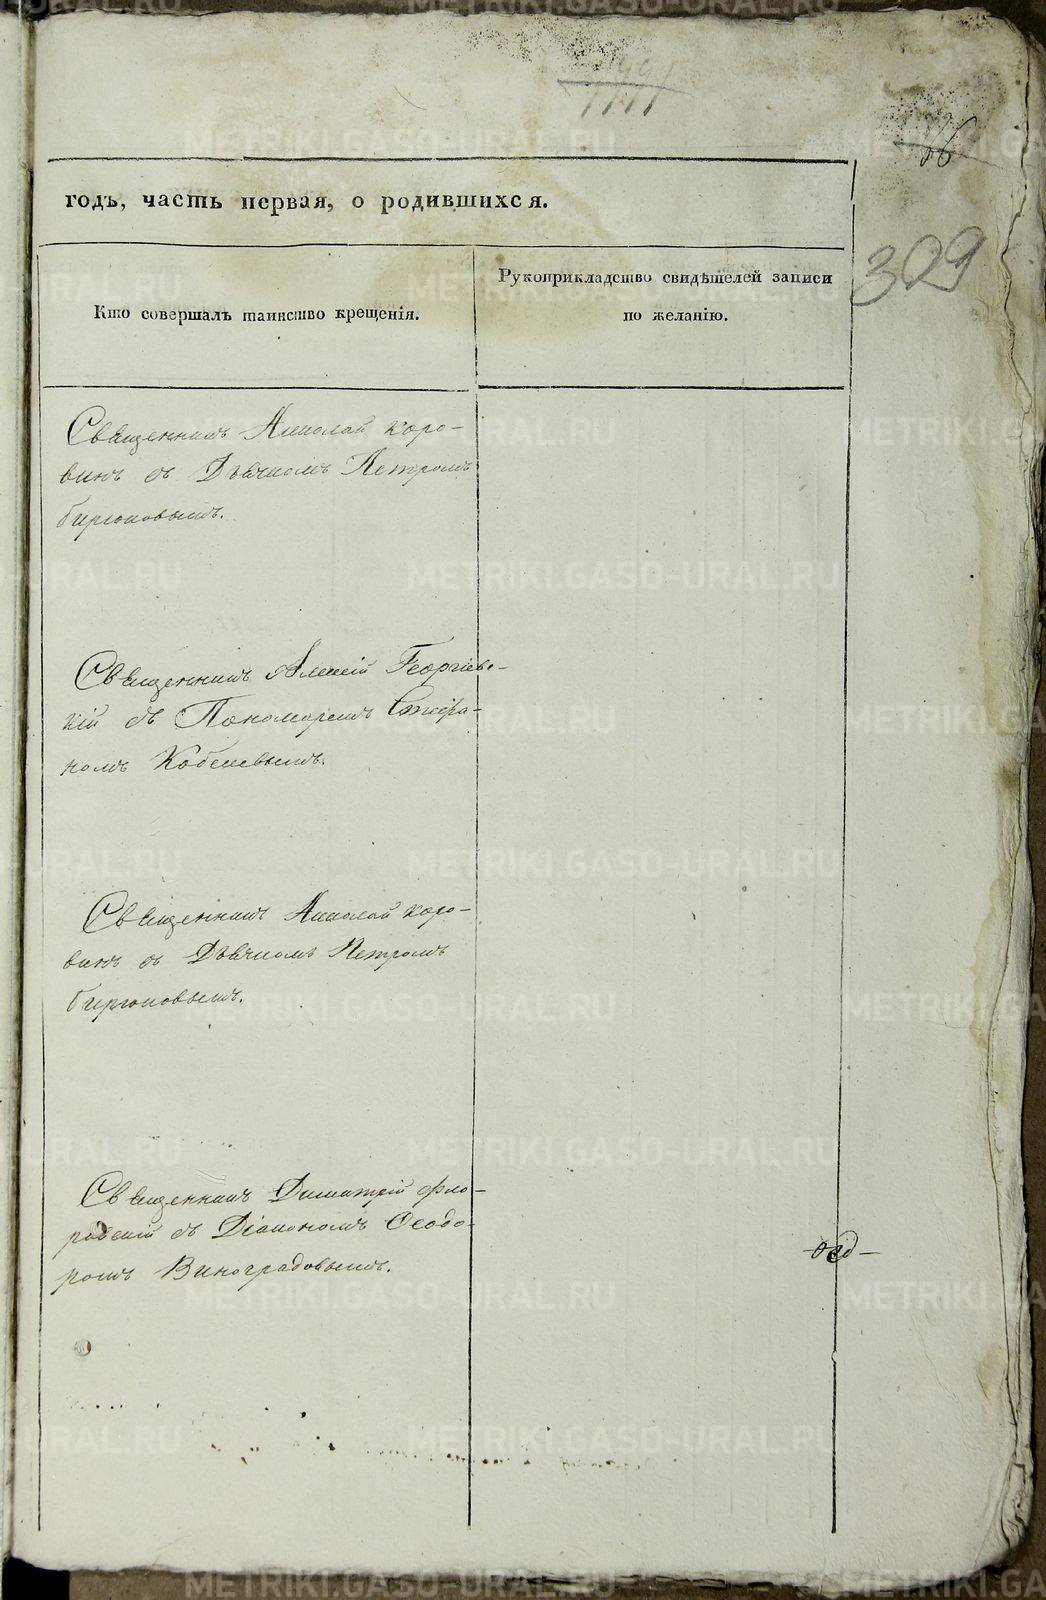 годъ, часть первая, о родившихся.
Кто совершалъ таинство крещенія.
Рукоприкладство свидѣтелей записи
по желанію.
329
Священникъ Николай Коро-
винъ съ Дьячкомъ Петромъ
Бирюковымъ.
Священникъ Алексій Георгіевс-
кій съ Пономаремъ Стефа-
номъ Кобелевымъ.
Священникъ Николай Коро-
винъ съ Дьячкомъ Петромъ
Бирюковымъ.
Священникъ Димитрій Фло-
ровскій съ Діакономъ Ѳеодо-
ромъ Виноградовымъ.
METRIKI.GASO-URAL.RU